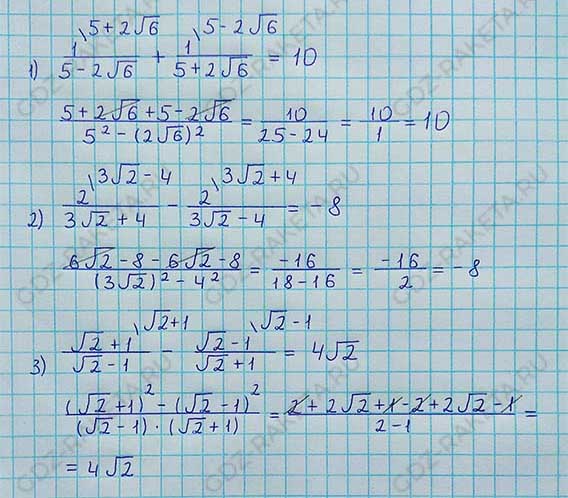 1) 1\5+2√6 / 5-2√6 + 1\5-2√6 / 5+2√6 = 10
5+2√6+5-2√6 / 5²-(2√6)² = 10 / 25-24 = 10 / 1 = 10
2) 2\3√2-4 / 3√2+4 - 2\3√2+4 / 3√2-4 = 8
6√2-8-6√2-8 / (3√2)²-4² = -16 / 18-16 = -16 / 2 = -8
3) √2+1\√2+1 / √2-1 - √2-1\√2-1 / √2+1 = 4√2
(√2+1)²-(√2-1)² / (√2-1)·(√2+1) = 2+2√2+1-2+2√2-1 / 2-1 =
= 4√2
GDZ-RAKETA.RU